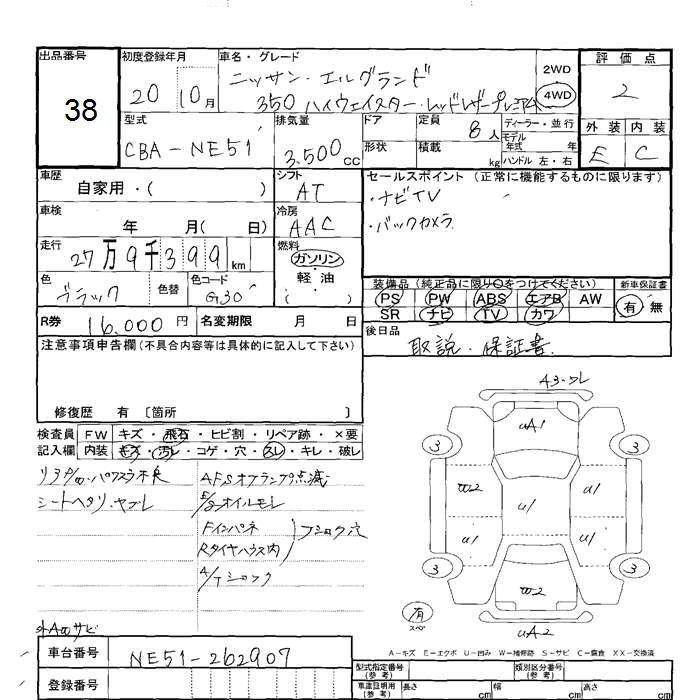 出品番号
38
初度登録年月
20 10月
車名・グレード
ニッサン・エルグランド
350 ハイウェイスター・レッドレザープレミアム
2WD
4WD
評価点
2
外装 内装
E C
型式
CBA-NE51
排気量
3.500cc
ドア
形状
定員 8人
積載 kg
ディーラー・並行
モデル年式 年式
ハンドル 左・右
車歴
自家用・( )
シフト
AT
車検
年 月( 日)
冷房
AAC
走行
27万9千399km
燃料
ガソリン
軽・油
( )
色
ブラック
色替
色コード
G30
セールスポイント (正常に機能するものに限ります)
・ナビTV
・バックカメラ
装備品 (純正品に限り○をつけてください)
PS PW ABS エアB AW
SR ナビ TV カワ
新車保証書
有 無
R券 16.000円 名変期限 月 日
後日品
取説・保証書
注意事項申告欄(不具合内容等は具体的に記入して下さい)
修復歴 有 〔箇所 〕
検査員記入欄
FW キズ・飛石・ヒビ割・リペア跡・×要
内装 キズ・汚レ・コゲ・穴・スレ・キレ・破レ
パワスラ不良
シートヘタリ・ヤブレ
AFSオフランプ点滅
E/gオイルモレ
Fインパネ
Rタイヤハウス内
フショク穴
A/Tショック
外Aのサビ
A3・ワレ
UA1
3
3
W2
U1
U1
U1
U1
3
3
W2
UA2
有
スペア
A-キズ E-エクボ U-凹み W-補修跡 S-サビ C-腐食 XX-交換済
車台番号
NE51-262907
登録番号
型式指定番号(参考)
類別区分番号(参考)
車庫証明用(参考)
長さ cm 幅 cm 高さ cm